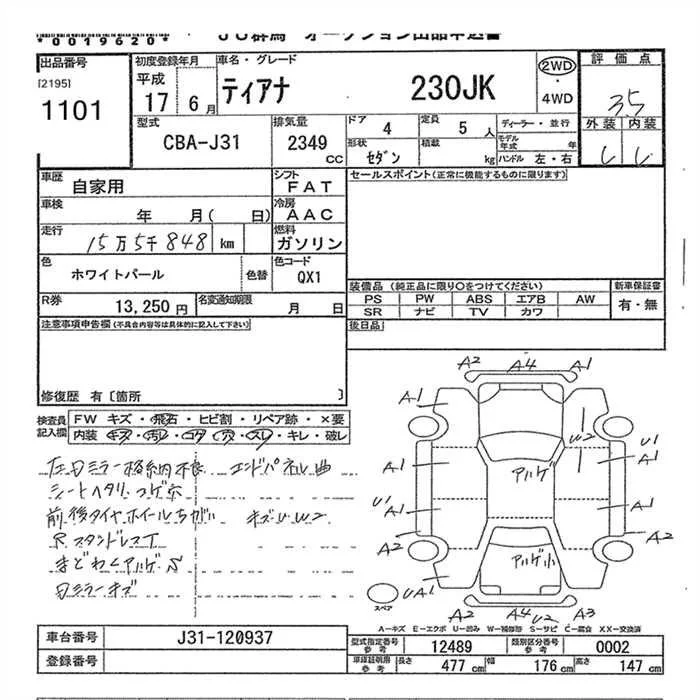 *0019620*
JU群馬 オークション出品申込書
出品番号
[2195]
1101
初度登録年月
平成
17 6月
車名・グレード
ティアナ 230JK
2WD
4WD
評価点
3.5
外装 内装
型式
CBA-J31
排気量
2349
CC
ドア 4
定員 5 人
形状 セダン
積載 kg
ディーラー・並行
モデル年式 年
ハンドル 左・右
車歴
自家用
シフト
FAT
車検
年 月( 日)
冷房
AAC
走行
15万5千848 km
燃料
ガソリン
色
ホワイトパール
色替
色コード
QX1
R券
13,250円
名変通知期限
月 日
セールスポイント(正常に機能するものに限ります)
装備品(純正品に限り○をつけてください)
PS PW ABS エアB AW
SR ナビ TV カワ
新車保証書
有・無
後日品
注意事項申告欄(不具合内容等は具体的に記入して下さい)
修復歴 有〔箇所 〕
検査員記入欄
FW キズ・飛石・ヒビ割・リペア跡・×要
内装 キズ・汚レ・コゲ・穴・スレ・キレ・破レ
左目ミラー格納不良 エンドパネル曲
シートヘタリ コゲ穴
前後タイヤホイールちがい キズUW2
まどわくアルゲ
目ミラーキズ
A2 A4 A1
A1
A1
W2
U1
A1
アルゲ
U1
A1
A1
A2
A2
アルゲ小
UA1
A2 A4 U2 A3
スペア
A－キズ E－エクボ U－凹み W－補修跡 S－サビ C－腐食 XX－交換済
車台番号
J31-120937
登録番号
型式指定番号 参考
12489
類別区分番号 参考
0002
車庫証明用 参考
長さ 477 cm
幅 176 cm
高さ 147 cm